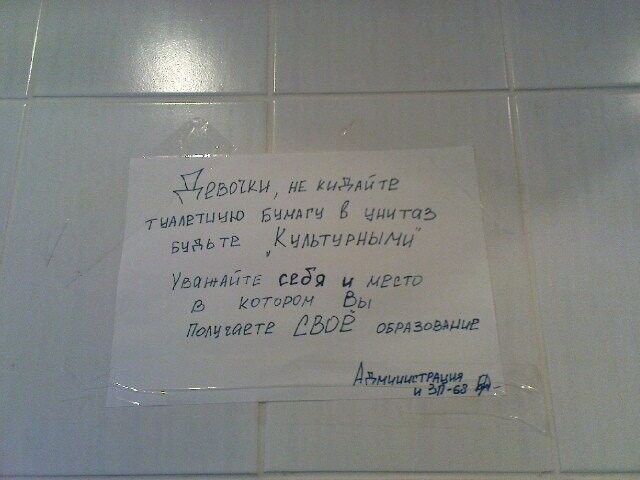 Девочки, не кидайте
туалетную бумагу в унитаз
будьте „Культурными"
Уважайте себя и место
в котором Вы
получаете СВОЁ образование
Администрация
и ЗП-68